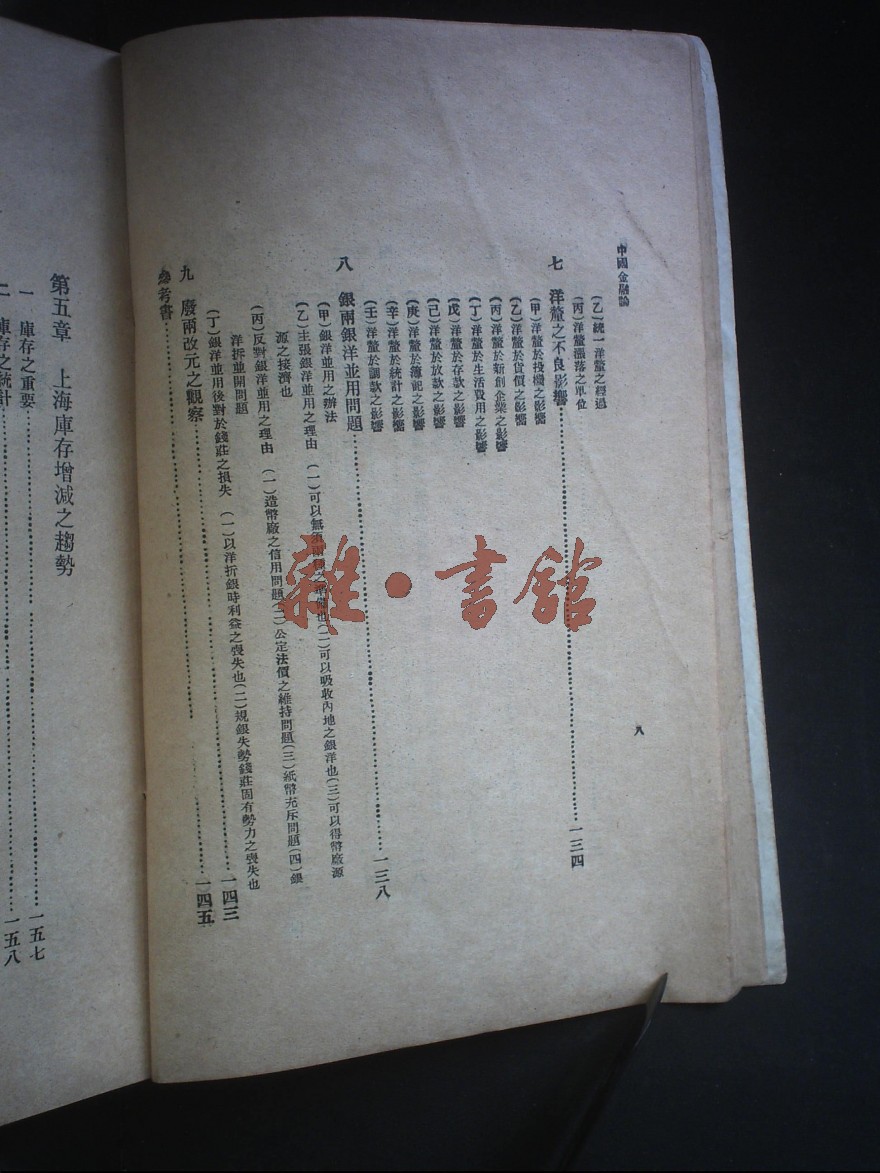 中國金融論
八
(乙)統一洋釐之經過
(丙)洋釐漲落之單位
七 洋釐之不良影響……一三四
(甲)洋釐於投機之影響
(乙)洋釐於貨價之影響
(丙)洋釐於新創企業之影響
(丁)洋釐於生活費用之影響
(戊)洋釐於存款之影響
(己)洋釐於放款之影響
(庚)洋釐於簿記之影響
(辛)洋釐於統計之影響
(壬)洋釐於調款之影響
八 銀兩銀洋並用問題……一三八
(甲)銀洋並用之辦法
(乙)主張銀洋並用之理由 (一)可以無須兩種之準備也(二)可以吸收內地之銀洋也(三)可以得幣廠源
源之接濟也
(丙)反對銀洋並用之理由 (一)造幣廠之信用問題(二)公定法價之維持問題(三)紙幣充斥問題(四)銀
洋拆並開問題
(丁)銀洋並用後對於錢莊之損失 (一)以洋折銀時利益之喪失也(二)規銀失勢錢莊固有勢力之喪失也
九 廢兩改元之觀察……一四三
參考書……一四五
第五章 上海庫存增減之趨勢
一 庫存之重要……一五七
二 庫存之統計……一五八
雜·書館